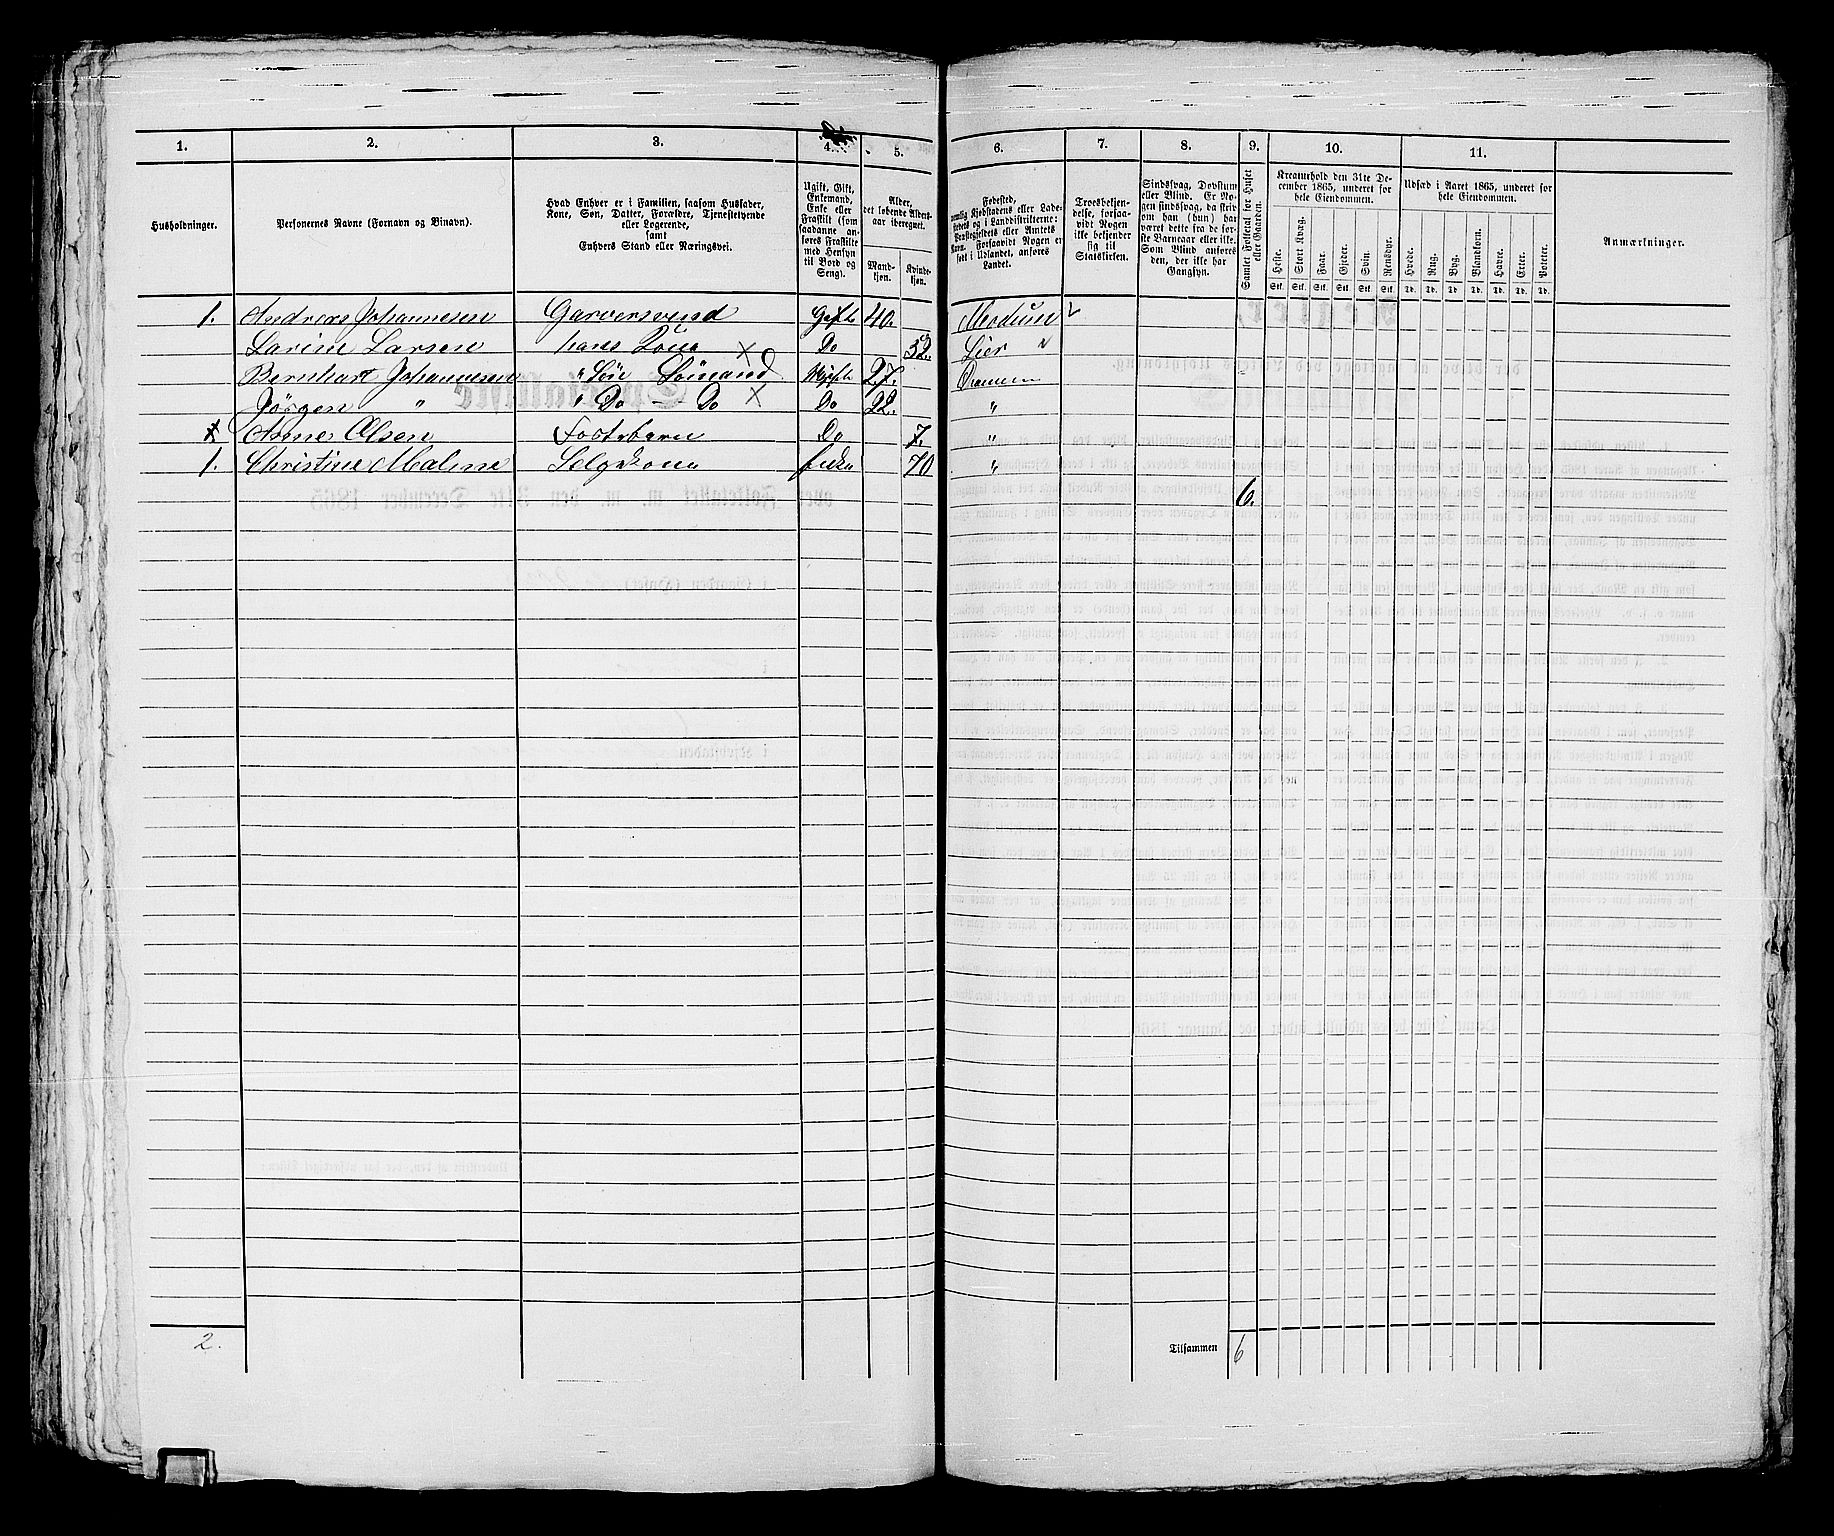 1. 2. 3. 4. 5. 6. 7. 8. 9. 10. 11.
Husholdninger.
Personernes Navne (Fornavn og Binavn).
Hvad Enhver er i Familien, saasom Husfader,
Kone, Søn, Datter, Forældre, Tjenestetyende
eller Logerende,
samt
Enhvers Stand eller Næringsvei.
Ugift, Gift,
Enkemand,
Enke eller
Fraskilt (som
saadanne an-
føres Fraskilte
med Hensyn
til Bord og
Seng).
Alder,
det løbende Alders-
aar iberegnet.
Mand-
kjøn.
Kvinde-
kjøn.
Fødested,
nemlig Kjøbstadens eller Lade-
stedets og i Landdistrikterne:
Præstegjeldets eller Amtets
Navn. Forsaavidt Nogen er
født i Udlandet, anføres
Landet.
Troesbekjen-
delse, forsaa-
vidt Nogen
ikke bekjender
sig til
Statskirken.
Sindssvag, Døvstum
eller Blind. Er No-
gen sindssvag, da skriv
om han (hun) har
været dette fra de før-
ste Barneaar eller ikke.
Som Blind anføres
den, der ikke har
Gangsyn.
Samlet Folketal for Huset
eller Gaarden.
Kreaturhold den 31te De-
cember 1865, underet for
hele Eiendommen.
Heste. Stort Kvæg. Faar. Gjeder. Svin. Rensdyr.
Stk. Stk. Stk. Stk. Stk. Stk.
Udsæd i Aaret 1865, underet for
hele Eiendommen.
Hvede. Rug. Byg. Blandkorn. Havre. Erter. Poteter.
Td. Td. Td. Td. Td. Td. Td.
Anmærkninger.
1. Andreas Johannesen Garversvend Gift 40. Modum
Larine Larsen hans Kone Do 32. Lier
Bernhart Johannesen " Søn Sømand Ugift 27. Drammen
Jørgen " " Do - Do Do 22. "
Anne Olsen Fosterbarn Do 7. "
1. Christine Malene Selgekone Enke 70 "
6.
2.
Tilsammen 6